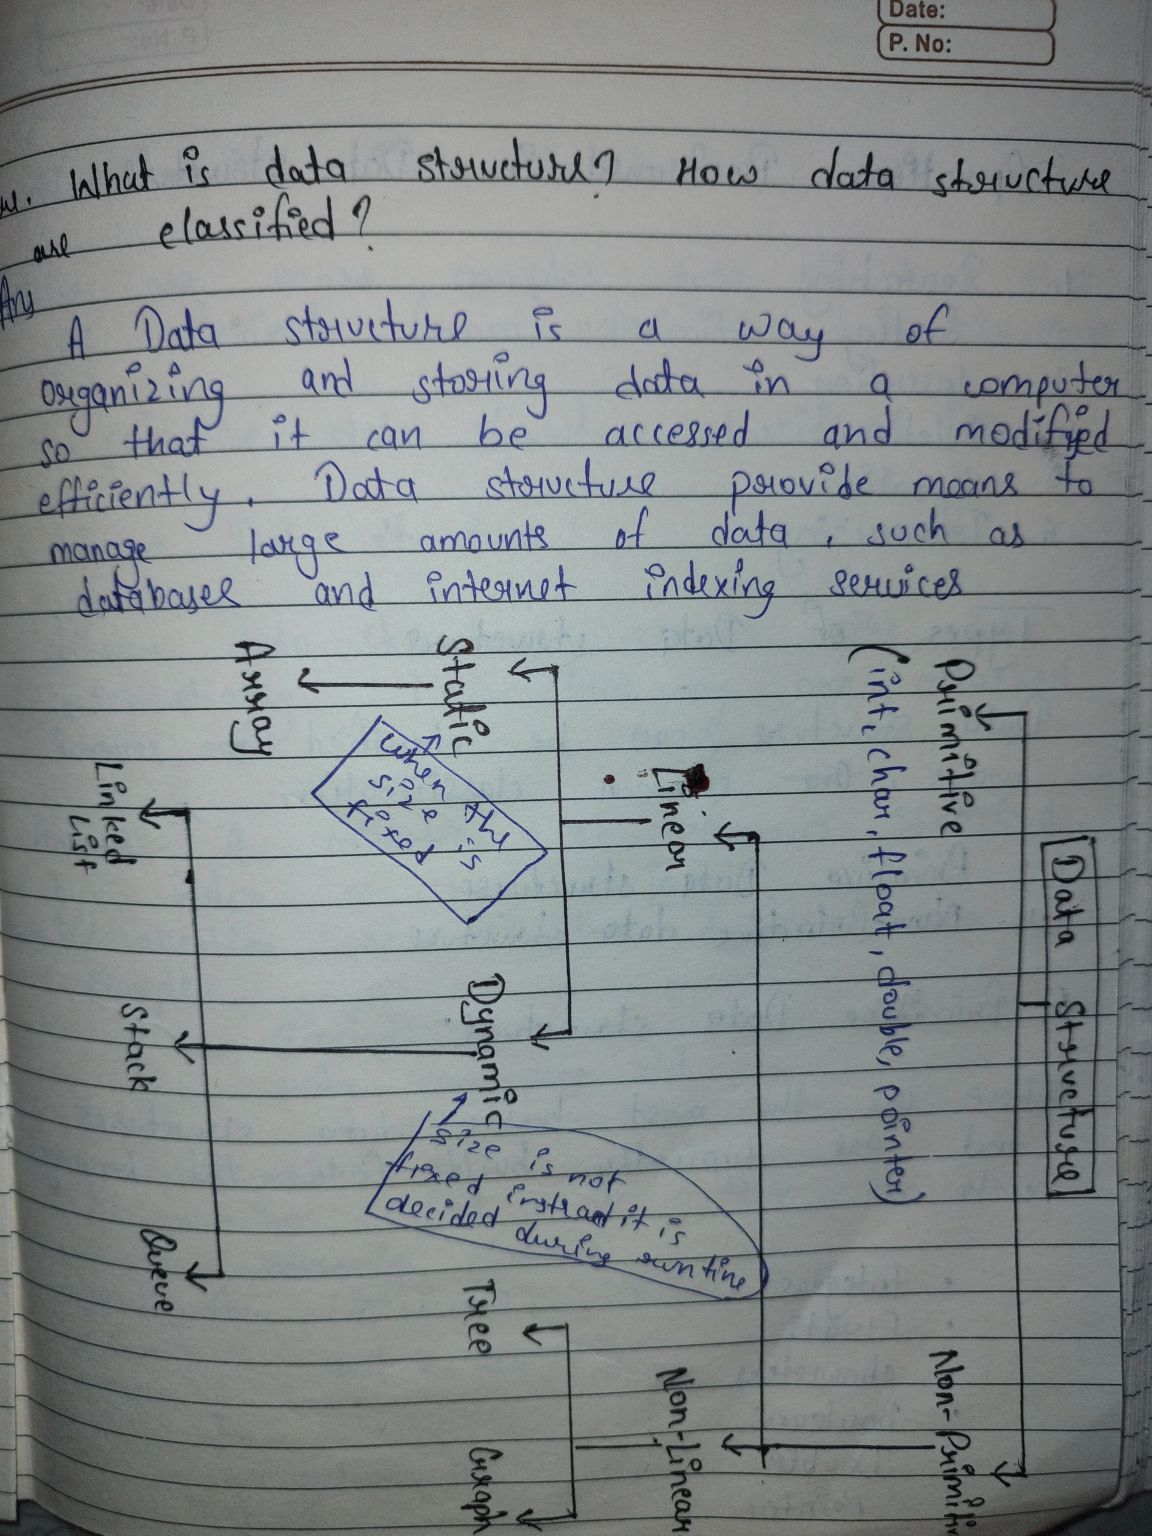 Date:
P. No:
What is data structure? How data structure
are classified?
Ans
A Data structure is a way of
organizing and storing data in a computer
so that it can be accessed and modified
efficiently. Data structure provide means to
manage large amounts of data, such as
databases and internet indexing services
Data Structure
Primitive
(int, char, float, double, pointer)
Non-Primiti
Linear
Non-Linear
Static
When the
size is
fixed
Dynamic
size is not
fixed instead it is
decided during runtime
Tree
Graph
Array
Linked
List
Stack
Queue